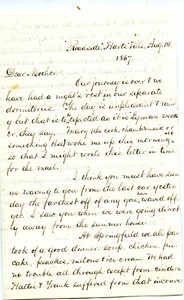 "Roadside" Hartsville, Aug. 14
1867
Dear Mother
Our journey is over & we
have had a night's rest in our separate
dormitories. The day is unpleasant & rainy
but that is to be expected as it is Lyman week
so they say. Mary (the cook, chambermaid or
something else) woke me up this morning
so that I might write this letter in time
for the mail.
I think you must have seen
us waving to you from the last car yester
day the farthest off of any you, waved off
yet. I saw you when we were going direct
ly away from the summer house.
At Springfield we all par
took of a good dinner. Soup, chicken, pan-
cake, peaches, melons & ice cream. We had
no trouble all through except from cinders
Hattie & Frank suffered from that inconve